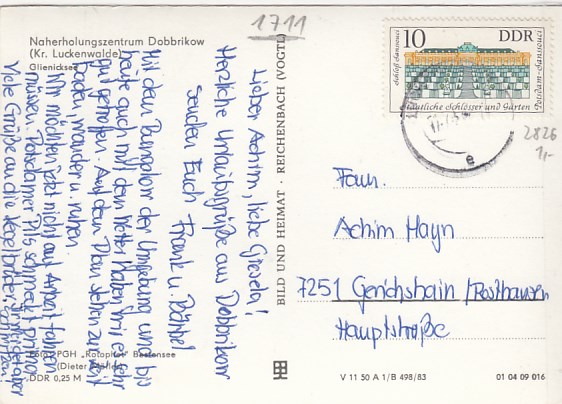 1711
Naherholungszentrum Dobbrikow
(Kr. Luckenwalde)
Glienicksee
Lieber Achim, liebe Gisela!
Herzliche Urlaubsgrüße aus Dobbrikow
senden Euch Frank u. Bärbel
Mit dem Bungalow der Umgebung und bis
heute auch mit dem Wetter haben wir es sehr
gut getroffen. Auf dem Plan stehen zur Zeit
baden, wandern u. ruhen.
Wir möchten jetzt nicht auf Arbeit fahren
müssen. Potsdamer Pils schmeckt prima
Viele Grüße an die Kegelbrüder
Foto: PGH „Rotophot" Bestensee
(Dieter
DDR 0,25 M
BILD UND HEIMAT · REICHENBACH (VOGTL)
10 DDR
Schloß Sanssouci
Potsdam-Sanssouci
Staatliche Schlösser und Gärten
e
2826
1,-
Fam.
Achim Hayn
7251 Gerichshain / Posthausen
Hauptstraße
V 11 50 A 1/B 498/83
01 04 09 016